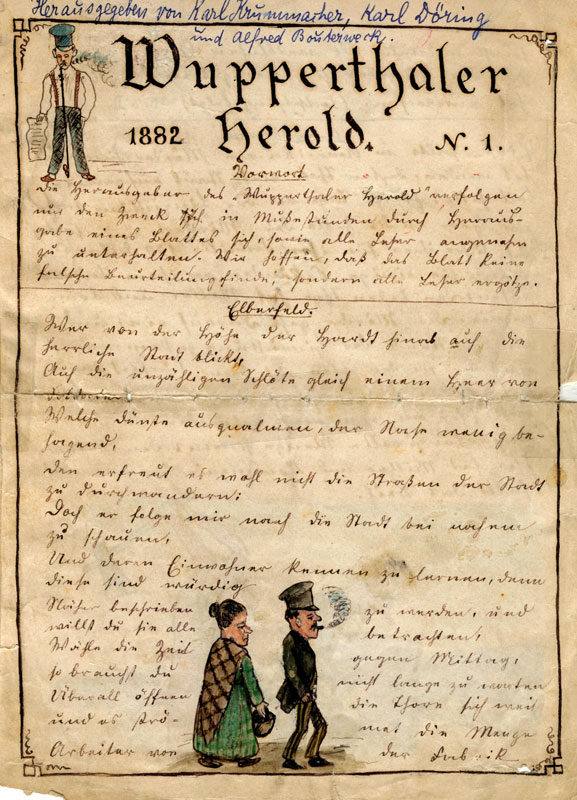 Herausgegeben von Karl Krummacher, Karl Döring
und Alfred Bouterweck.
Wupperthaler
1882 Herold. N. 1.
Vorwort
Die Herausgeber des „Wupperthaler Herold" verfolgen
nur den Zweck sich in Mußestunden durch Heraus-
gabe eines Blattes sich, sowie alle Leser angenehm
zu unterhalten. Wir hoffen, daß das Blatt keine
falsche Beurteilung finde, sondern alle Leser ergötze.
Elberfeld.
Wer von der Höhe der Hardt hinab auf die
herrliche Stadt blickt,
Auf die unzähligen Schlöte gleich einem Heer von
Soldaten
Welche Dünste ausqualmen, der Nase wenig be-
hagend,
Den erfreut es wohl nicht die Straßen der Stadt
zu durchwandern;
Doch er folge mir nach die Stadt bei nahem
zu schauen,
Und deren Einwohner kennen zu lernen, denn
diese sind würdig
Näher beschrieben zu werden, und
willst du sie alle betrachten,
Wähle die Zeit gegen Mittag,
so brauchst du nicht lange zu warten
Überall öffnen die Thore sich weit
und es strö- met die Menge
Arbeiter von der Fabrik